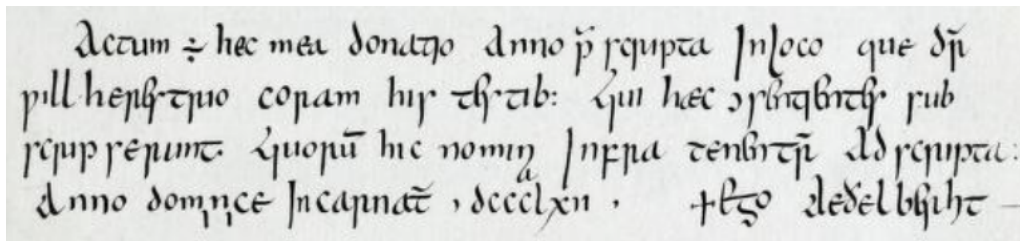 Actum ÷ hec mea donatio Anno p̄ scripta In loco que dr̄
ƿillherestrio coram his testib: Qui hæc ɔsentientes sub
scripserunt. Quorū hic nomina Infra tenentr̄ Adscripta:
Anno dominice Incarnat̄ , dccclxii . + Ego aeðelberiht